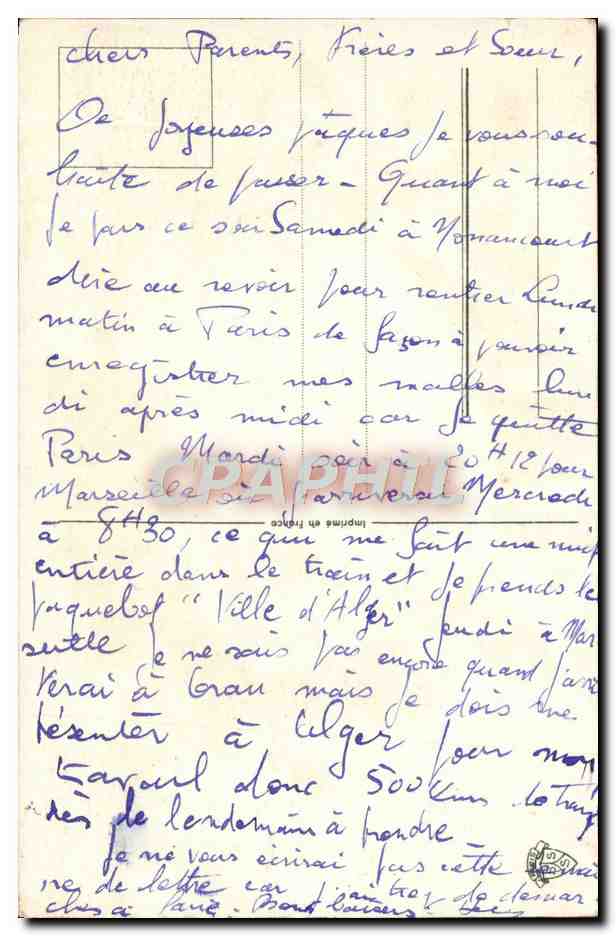 chers Parents, Frères et Soeur,
De joyeuses pâques je vous sou-
haite de passer - Quant à moi
je pars ce soir Samedi à Nonancourt
dire au revoir pour rentrer Lundi
matin à Paris de façon à pouvoir
enregistrer mes malles lun
di après midi car je quitte
Paris Mardi soir à 20H12 pour
Marseille où j'arriverai Mercredi
CPAPHIL
Imprimé en France
à 8H30, ce qui me fait une nuit
entière dans le train et je prends le
paquebot "Ville d'Alger" jeudi à Mar
seille je ne sais pas encore quand j'arri
verai à Oran mais je dois me
présenter à Alger pour mon
travail donc 500 Kms de train
dès le lendemain à prendre
je ne vous écrirai pas cette semai
ne de lettre car j'ai trop de démar-
ches à faire - Bons baisers -